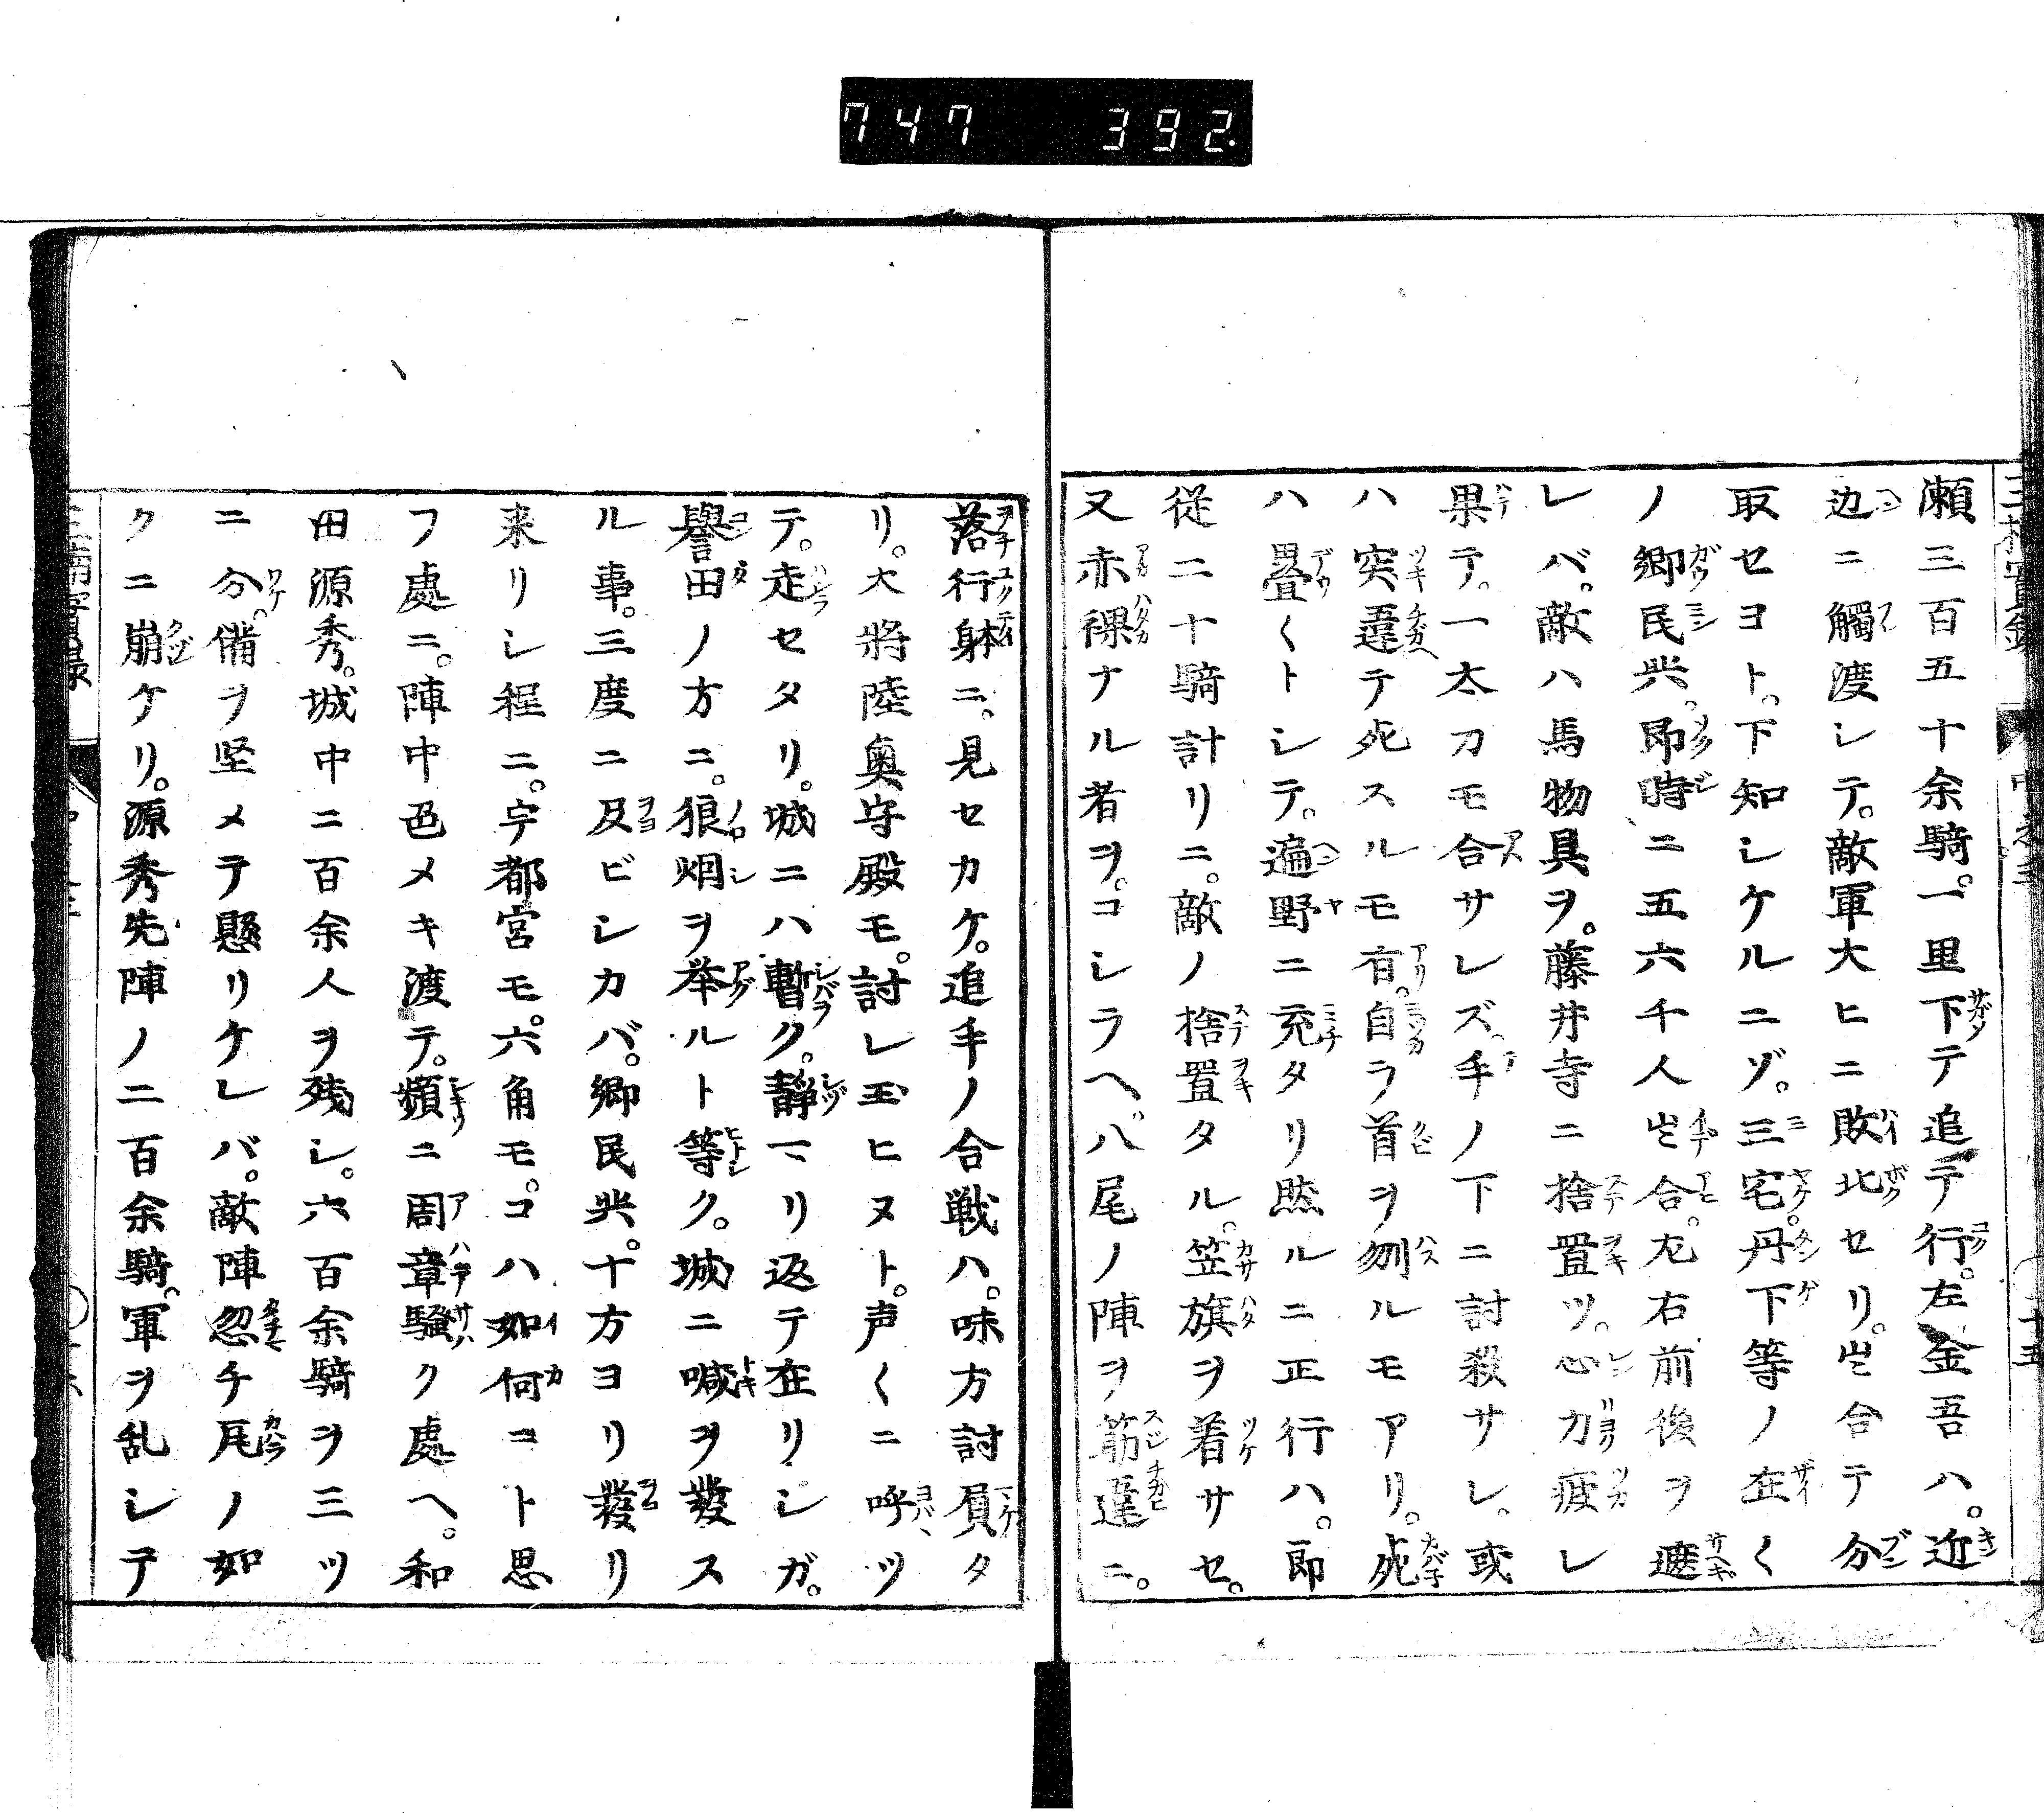 747 392.
瀬三百五十余騎。一里下テ追テ行。左金吾ハ。近
辺ニ觸渡シテ。敵軍大ヒニ敗北セリ。出合テ分
取セヨト。下知シケルニゾ。三宅。丹下等ノ在〱
ノ郷民共。即時ニ五六千人出合。左右前後ヲ遮
レバ。敵ハ馬物具ヲ。藤井寺ニ捨置ツ。心力疲レ
果テ。一太刀モ合サレズ。手ノ下ニ討殺サレ。或
ハ突違テ死スルモ有。自ラ首ヲ刎ルモアリ。死
ハ畳〱トシテ。遍野ニ充タリ然ルニ正行ハ。郎
従二十騎計リニ。敵ノ捨置タル。笠旗ヲ着サセ。
又赤裸ナル者ヲ。コシラヘ。八尾ノ陣ヲ筋違ニ。
落行躰ニ。見セカケ。追手ノ合戦ハ。味方討負タ
リ。大將陸奥守殿モ。討レ玉ヒヌト。声〱ニ呼ツ
テ。走セタリ。城ニハ暫ク。静マリ返テ在リシガ。
譽田ノ方ニ。狼烟ヲ挙ルト等ク。城ニ喊ヲ發ス
ル事。三度ニ及ビシカバ。郷民共。十方ヨリ發リ
来リシ程ニ。宇都宮モ。六角モ。コハ如何コト思
フ處ニ。陣中色メキ渡テ。頻ニ周章騒ク處ヘ。和
田源秀。城中ニ百余人ヲ残シ。六百余騎ヲ三ツ
ニ分。備ヲ堅メテ懸リケレバ。敵陣忽チ瓦ノ如
クニ崩ケリ。源秀先陣ノ二百余騎。軍ヲ乱シテ